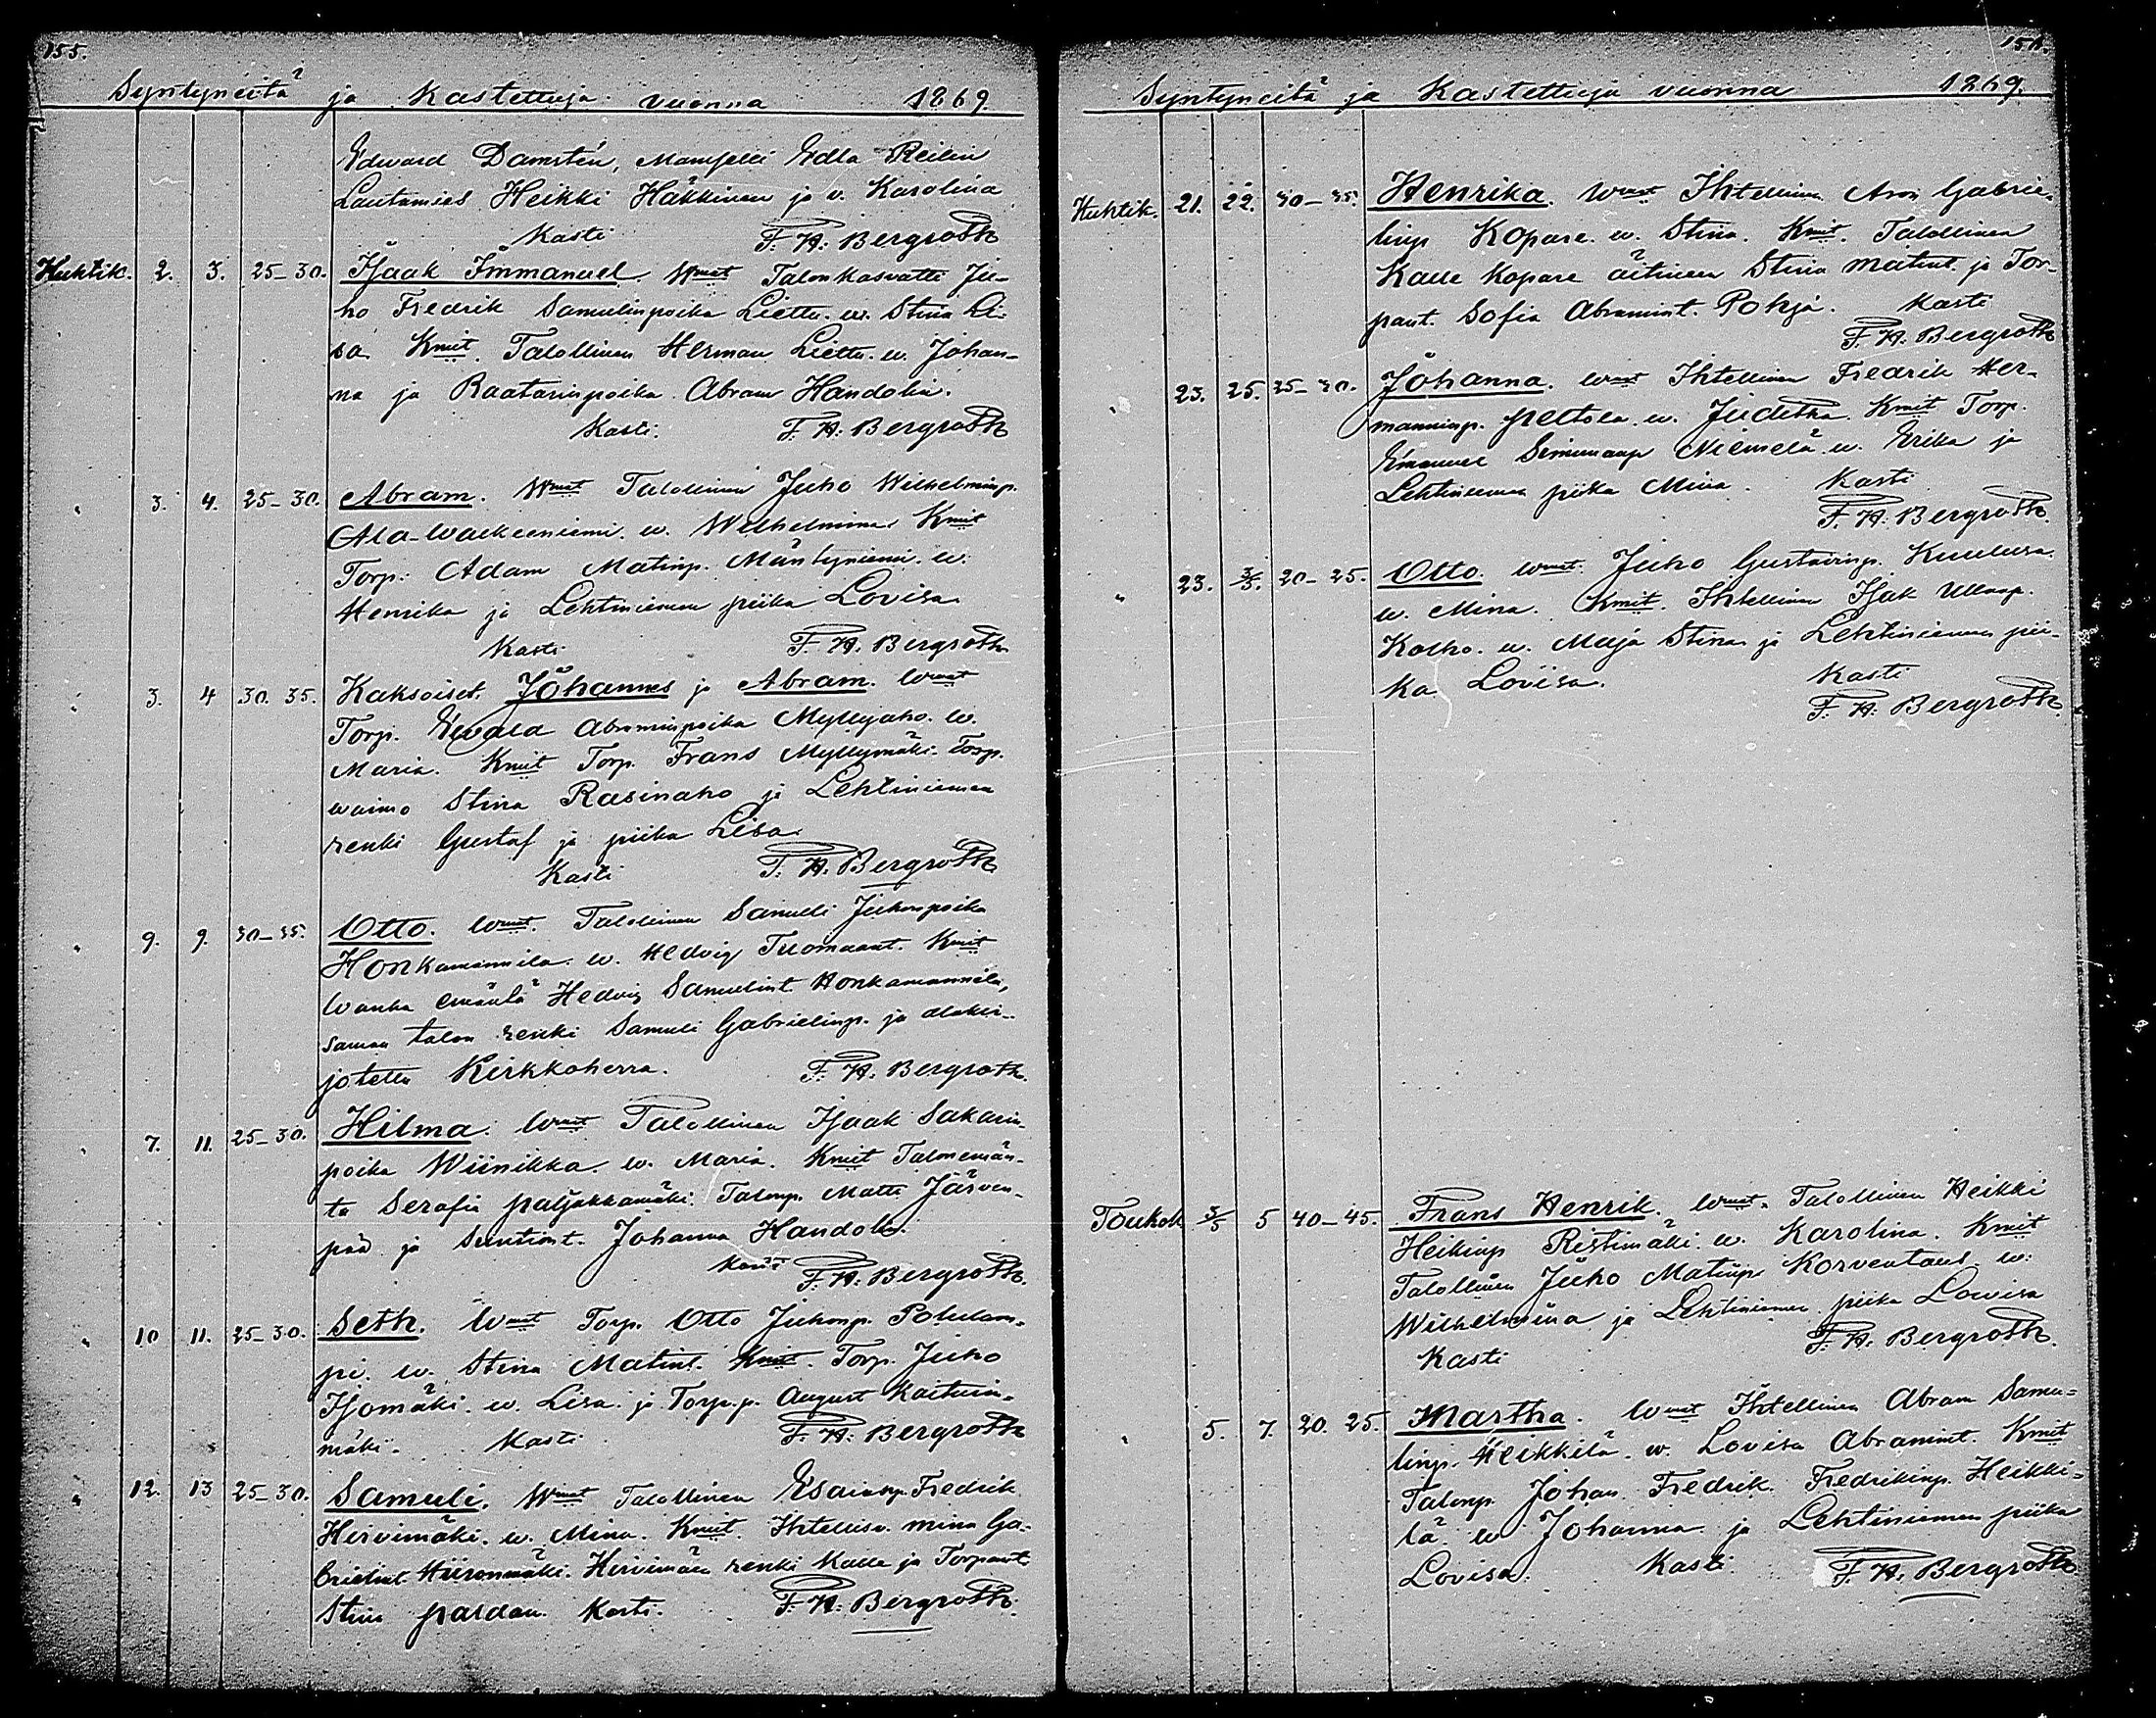 155.
Syntyneitä ja Kastettuja vuonna 1869
Edward Damstén, Mamselli Edla Reilin
Lautamies Heikki Häkkinen ja v. Karolina
Kasti F. H. Bergroth
Huhtik. 2. 3. 25-30. Isaak Immanuel. Wmat Talonkasvatti Ju-
ho Fredrik Samulinpoika Liettu. w. Stina Li-
sa Kmit. Talollinen Herman Liettu. w. Johan-
na ja Raatarinpoika Abram Handolin.
Kasti. F. H. Bergroth
" 3. 4. 25-30. Abram. Wmat Talollinen Juho Wilhelminp.
Ala-Walkeeniemi. w. Wilhelmina Kmit
Torp. Adam Matinp. Mäntyniemi. w.
Henrika ja Lehtiniemen piika Lovisa
Kasti F. H. Bergroth
" 3. 4 30. 35. Kaksoiset. Johannes ja Abram. Wmat
Torp. Ewald Abraminpoika Myllyaho. w.
Maria. Kmit Torp. Frans Myllymäki. Torp.
waimo Stina Rasinaho ja Lehtiniemen
renki Gustaf ja piika Lisa
Kasti F. H. Bergroth
" 9. 9. 30-35. Otto. Wmat. Talollinen Samuli Juhonpoika
Honkamannila. w. Hedvig Tuomaant. Kmit
Wanha emäntä Hedvig Samulint. Honkamannila,
saman talon renki Samuli Gabrielinp. ja allekir-
jotettu Kirkkoherra. F. H. Bergroth.
" 7. 11. 25-30. Hilma. Wmat Talollinen Isaak Sakarin-
poika Wiinikka. w. Maria. Kmit Talonemän-
tä Serafia Paljakkamäki. Talonp. Matti Järven-
pää ja Suntiont. Johanna Handolin.
Kasti F. H. Bergroth.
" 10 11. 25-30. Seth. Wmat Torp. Otto Juhonp. Polulam-
pi. w. Stina Matint. Kmit. Torp. Juho
Isomäki. w. Lisa. ja Torp.p. August Kaituin-
mäki. Kasti F. H. Bergroth
" 12. 13 25-30. Samuli. Wmat Talollinen Esaianp. Fredrik
Hirvimäki. w. Mina. Kmit. Ihtellisv. Mina Ga-
brielint. Hiironmäki. Hirvimäen renki Kalle ja Torpant.
Stina Paldan. Kasti. F. H. Bergroth.
156.
Syntyneitä ja Kastettuja vuonna 1869.
Huhtik. 21. 22. 30-35. Henrika. Wmat Ihtellinen Aron Gabrie-
linp. Kopare. w. Stina. Kmit. Talollinen
Kalle Kopare äitineen Stina Matint. ja Tor-
pant. Sofia Abramint. Pohja. Kasti
F. H. Bergroth
" 23. 25. 25-30. Johanna. Wmat Ihtellinen Fredrik Her-
manninp. Peltola. w. Juditha. Kmit Torp.
Emanuel Simunanp Niemelä. w. Erika ja
Lehtiniemen piika Mina. Kasti
F. H. Bergroth.
" 23. 3/5. 20-25. Otto Wmat. Juho Gustavinp. Kuulusa.
w. Mina. Kmit. Ihtellinen Isak Ullanp.
Kolho. w. Maja Stina ja Lehtiniemen pii-
ka Lovisa. Kasti
F. H. Bergroth.
Toukok 3/5 5 40-45. Frans Henrik. Wmat. Talollinen Heikki
Heikinp Ristimäki. w. Karolina. Kmit
Talollinen Juho Matinp. Korventaus. w.
Wilhelmina ja Lehtiniemen piika Lowisa
Kasti F. H. Bergroth.
" 5. 7. 20. 25. Martha. Wmat Ihtellinen Abram Samu-
linp. Heikkilä. w. Lovisa Abramint. Kmit
Talonp. Johan Fredrik Fredrikinp. Heikki-
lä w Johanna ja Lehtiniemen piika
Lovisa. Kasti. F. H. Bergroth